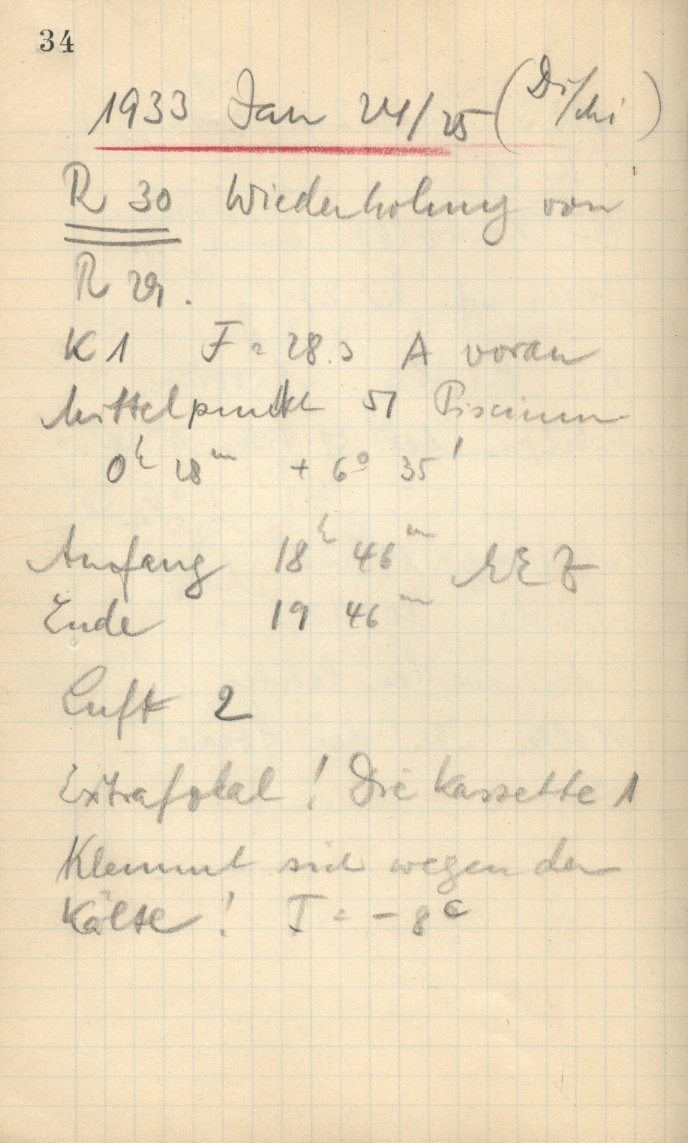 34
1933 Jan 24/25 (Di/Mi)
R 30 Wiederholung von
R 29.
K 1 F = 28.5 A voran
Mittelpunkt 51 Piscium
0h 28m + 6° 35'
Anfang 18h 46m MEZ
Ende 19 46m
Luft 2
Extrafokal! Die Kassette 1
Klemmt sich wegen der
Kälte! T = - 8°